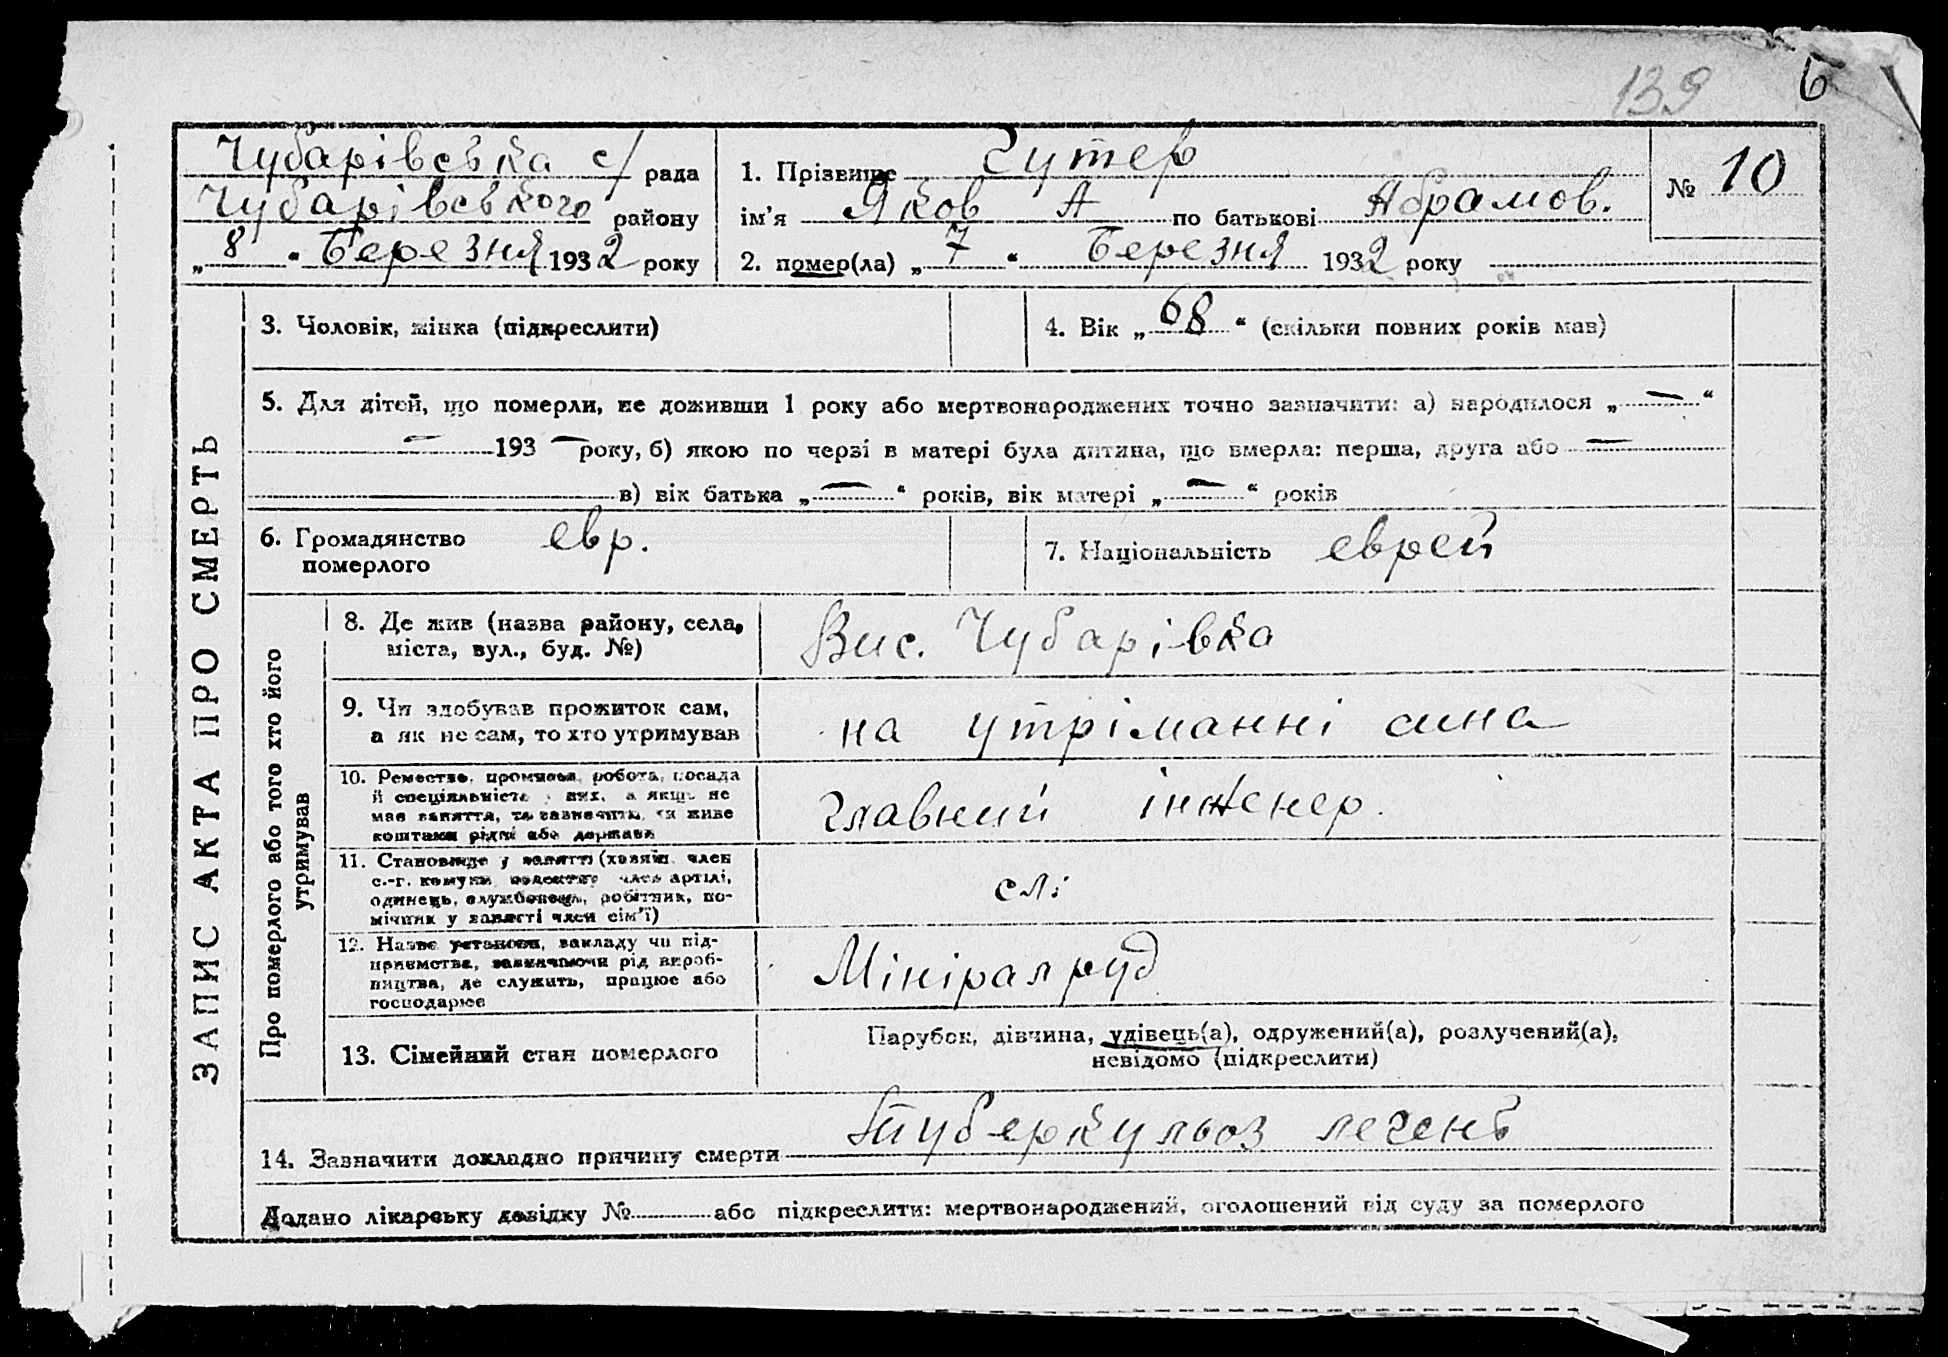 139 6
Чубарівська с/ рада
Чубарівського району
„ 8 “ Березня 1932 року
1. Прізвище Гутер
ім’я Яков А по батькові Абрамов.
2. помер(ла) „ 7 “ Березня 1932 року
№ 10
ЗАПИС АКТА ПРО СМЕРТЬ
3. Чоловік, жінка (підкреслити)
4. Вік „ 68 “ (скільки повних років мав)
5. Для дітей, що померли, не доживши 1 року або мертвонароджених точно зазначити: а) народилося „ — “
— 193 — року, б) якою по черзі в матері була дитина, що вмерла: перша, друга або —
в) вік батька „ — “ років, вік матері „ — “ років
6. Громадянство
померлого
евр.
7. Національність еврей
Про померлого або того хто його
утримував
8. Де жив (назва району, села,
міста, вул., буд. №)
Вис. Чубарівка
9. Чи здобував прожиток сам,
а як не сам, то хто утримував
на утріманні сина
10. Ремество, промисел, робота, посада
й спеціяльність у них, а якщо не
мав заняття, то зазначити, чи живе
коштами рідні або держави
главний інженер.
11. Становище у занятті (хазяїн, член
с.-г. комуни, член артілі,
одинець, службовець, робітник, по-
мічник у занятті член сім’ї)
сл:
12. Назва установи, закладу чи під-
приємства, зазначаючи рід вироб-
ництва, де служить, працює або
господарює
Мініралруд
13. Сімейний стан померлого
Парубок, дівчина, удівець(а), одружений(а), розлучений(а),
невідомо (підкреслити)
14. Зазначити докладно причину смерти Туберкульоз легень
Додано лікарську довідку № або підкреслити: мертвонароджений, оголошений від суду за померлого